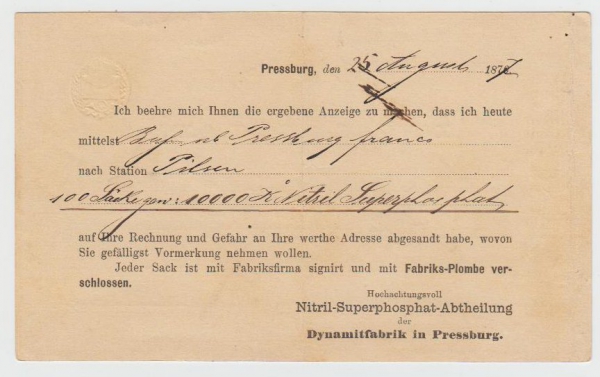 Pressburg, den 25 August 1877
Ich beehre mich Ihnen die ergebene Anzeige zu machen, dass ich heute
mittels Bahn ab Pressburg franco
nach Station Pilsen
100 Säcke gew: 10000 K Nitril Superphosphat
auf Ihre Rechnung und Gefahr an Ihre werthe Adresse abgesandt habe, wovon
Sie gefälligst Vormerkung nehmen wollen.
Jeder Sack ist mit Fabriksfirma signirt und mit Fabriks-Plombe ver-
schlossen.
Hochachtungsvoll
Nitril-Superphosphat-Abtheilung
der
Dynamitfabrik in Pressburg.